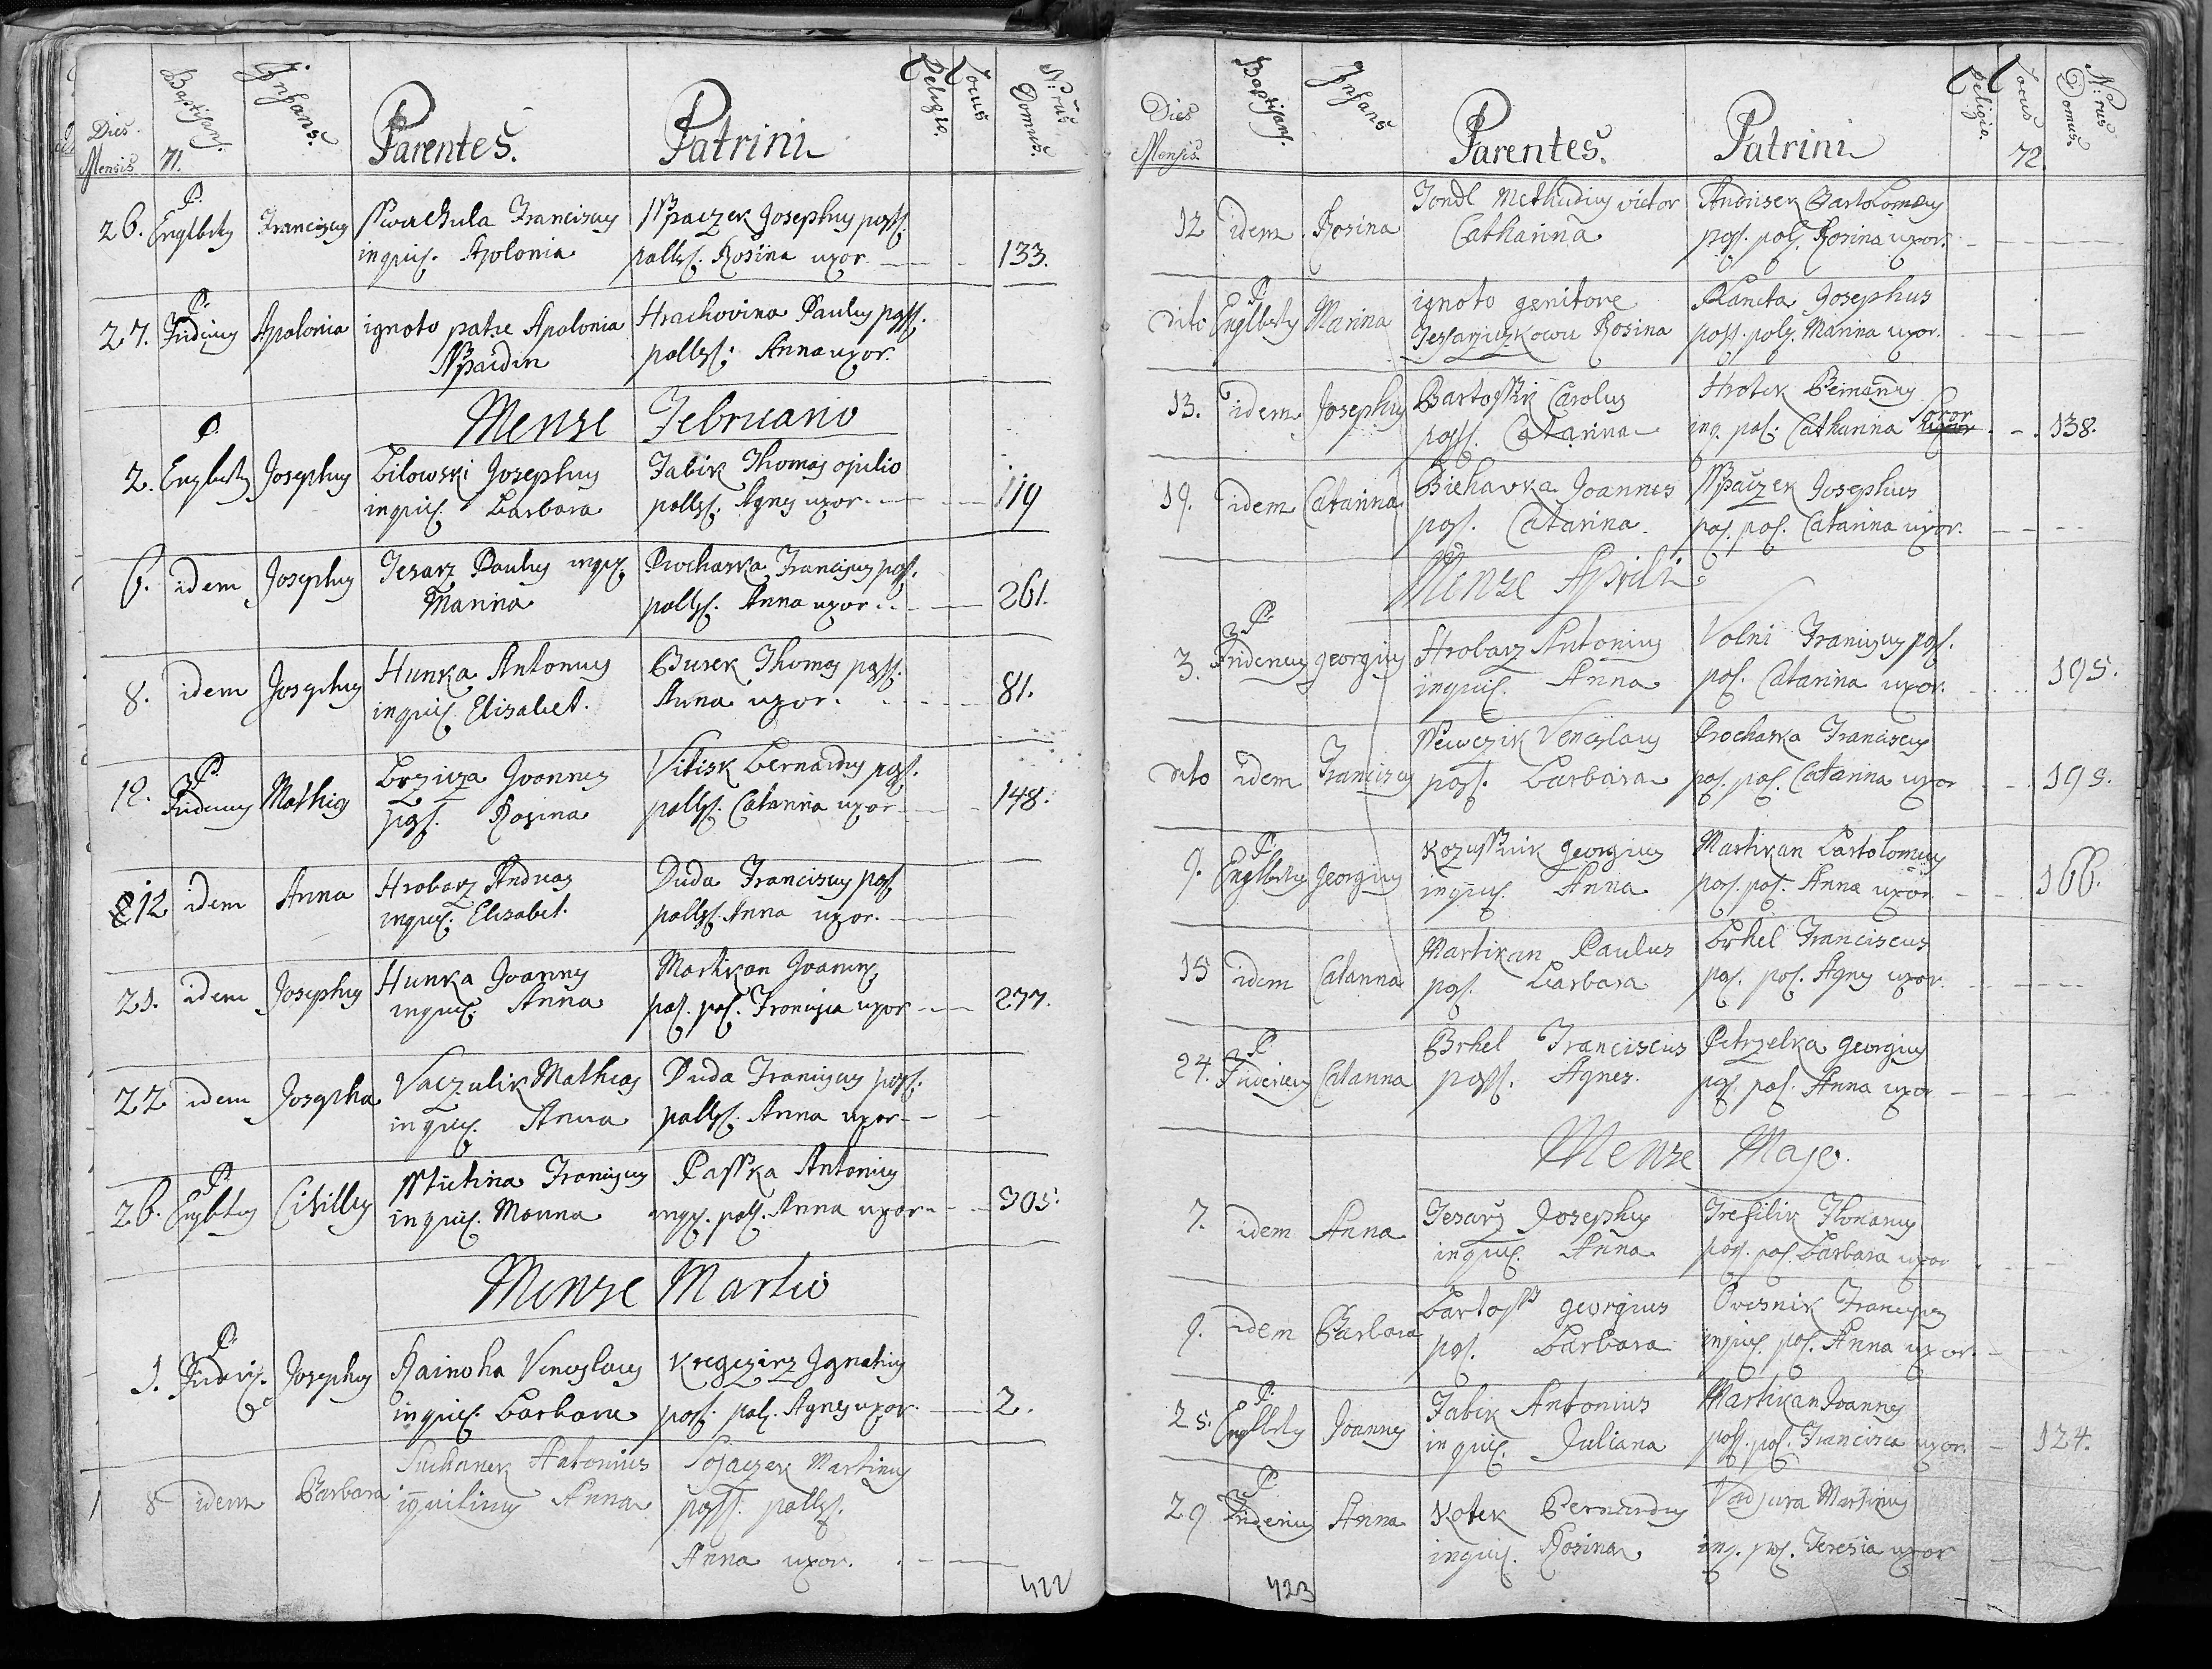 Dies Mensis. Baptisans. 71. Infans. Parentes. Patrini Religio. Locus N:rus Domus.
26. P. Englbertus Franciscus Swachula Franciscus Sspaczek Josephus poss.
inquil. Apolonia polless. Rosina uxor. 133.
27. P. Fridericus Apolonia ignoto patre Apolonia Hrachovina Paulus poss.
Sspaidin polless. Anna uxor.
Mense Februario
2. P. Englbertus Josephus Bilowski Josephus Fabik Thomas opilio
inquil. Barbara polless. Agnes uxor. 119
6. idem Josephus Tesarz Paulus inquil. Prochaska Franciscus poss.
Marina polless. Anna uxor. 261.
8. idem Josephus Hunka Antonius Burek Thomas poss.
inquil. Elisabet. Anna uxor. 81.
12. P. Fridericus Mathias Brzicza Joannes Vitisk Bernardus poss.
poss. Rosina polless. Catarina uxor 148.
12 idem Anna Hrobarz Andreas Duda Franciscus poss.
inquil. Elisabet. polless. Anna uxor.
21. idem Josephus Hunka Joannes Martikan Joannes
inquil. Anna pos. pol. Francisca uxor 277.
22 idem Josepha Vaczulik Mathias Duda Franciscus poss.
inquil. Anna polless. Anna uxor
26. P. Englbertus Cirillus Sstietina Franciscus Passka Antonius
inquil. Marina inqu. poll. Anna uxor 305.
Mense Martio
1. P. Frideric. Josephus Rainoha Venceslaus Kregczirz Ignatius
inquil. Barbara poss. pol. Agnes uxor. 2.
8 idem Barbara Suchanek Antonius Sojaczek Martinus
inquilinus Anna poss. polless.
Anna uxor.
422
Dies Mensis. Baptisans. Infans Parentes. Patrini Religio. Locus 72. N:rus Domus.
12 idem Rosina Fondl Methudius victor Andrisek Bartolomeus
Catharina poss. pol. Rosina uxor.
dito P. Englbertus Marina ignoto genitore Plancta Josephus
Tessarziczkowa Rosina poss. pol. Marina uxor.
13. idem Josephus Bartossik Carolus Hrotek Bernardus
poss. Catarina inq. pol. Catharina Soror 138.
19. idem Catarina Biehavka Joannes Sspaczek Josephus
pos. Catarina pos. pol. Catarina uxor.
Mense Aprili
3. P. Fridericus Georgius Hrobarz Antonius Volni Franciscus pos.
inquil. Anna pol. Catarina uxor. 195.
dito idem Franciscus Sewczik Venceslaus Prochaska Franciscus
poss. Barbara pos. pol. Catarina uxor 195.
9. P. Englbertus Georgius Kozussnik Georgius Martikan Bartolomeus
inquil. Anna pos. pol. Anna uxor. 166.
15 idem Catarina Martikan Paulus Brhel Franciscus
pos. Barbara pos. pol. Agnes uxor.
24. P. Fridericus Catarina Brhel Franciscus Petrzelka Georgius
poss. Agnes. pos. pol. Anna uxor
Mense Majo.
7. idem Anna Tesarz Josephus Trefilik Florianus
inquil. Anna pos. pol. Barbara uxor
9. idem Barbara Bartoss Georgius Ovesnik Franciscus
pos. Barbara inquil. pol. Anna uxor.
25. P. Englbertus Joannes Fabik Antonius Martikan Joannes
inquil. Juliana poss. pol. Francisca uxor. 124.
29 P. Fridericus Anna Kotek Bernardus Vadjura Martinus
inquil. Rosina inq. pol. Teresia uxor
423